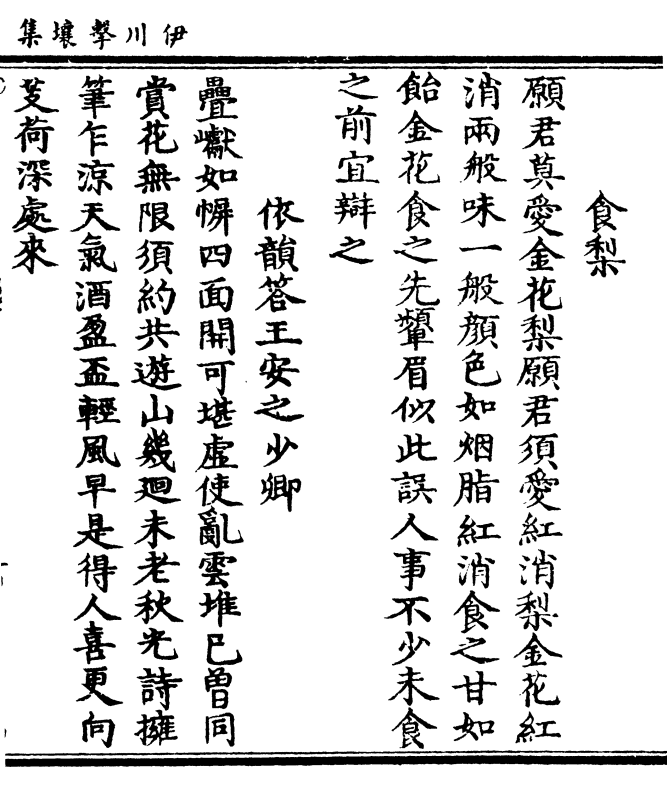 伊川擊壤集
食梨
願君莫愛金花梨願君須愛紅消梨金花紅
消兩般味一般顏色如烟脂紅消食之甘如
飴金花食之先顰眉似此誤人事不少未食
之前宜辯之
依韻答王安之少卿
疊巘如幈四面開可堪虛使亂雲堆已曾同
賞花無限須約共遊山幾廻未老秋光詩擁
筆乍涼天氣酒盈盃輕風早是得人喜更向
芰荷深處來